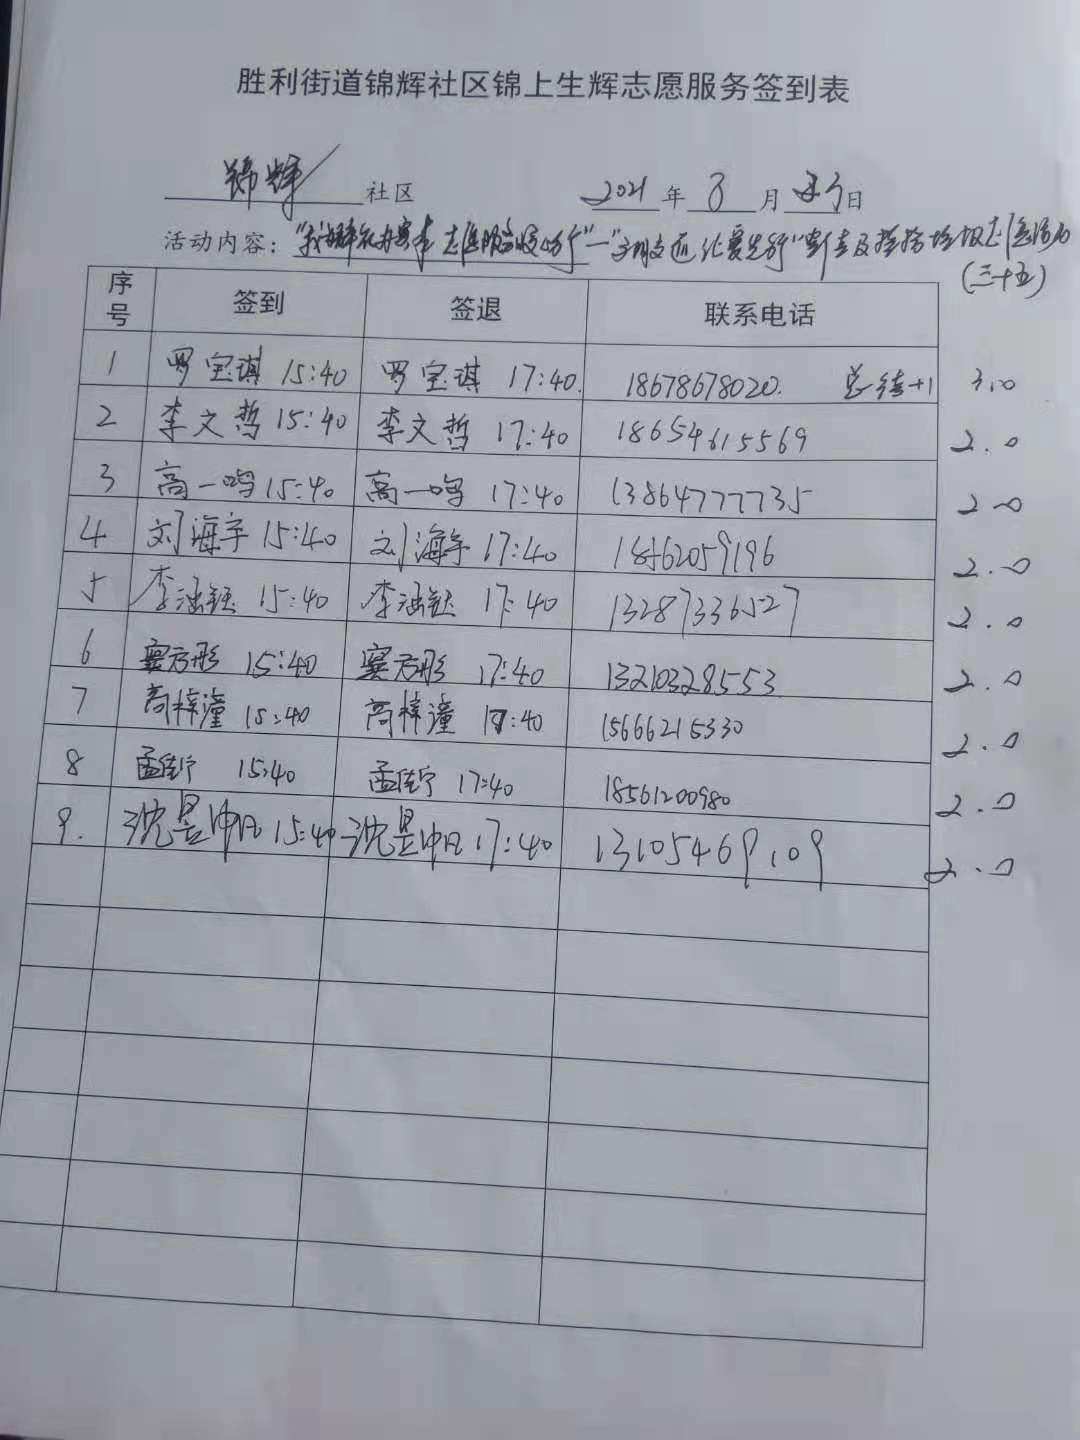 胜利街道锦辉社区锦上生辉志愿服务签到表
锦辉 社区 2021 年 8 月 日
活动内容: "我为群众办实事 志愿服务 行"—"文明交通 礼让先行"宣传及捡拾垃圾志愿活动
(三十五)
序号 签到 签退 联系电话
1 罗宝琪 15:40 罗宝琪 17:40. 18678678020. 总结+1 3.0
2 李文哲 15:40 李文哲 17:40 18654615569 2.0
3 高一鸣 15:40 高一鸣 17:40 13864777735 2.0
4 刘海宇 15:40 刘海宇 17:40 18562059196 2.0
5 李涵钰 15:40 李涵钰 17:40 13287336527 2.0
6 窦方彤 15:40 窦方彤 17:40 13210328553 2.0
7 高梓潼 15:40 高梓潼 17:40 15666215330 2.0
8 孟佳宁 15:40 孟佳宁 17:40 18561200980 2.0
9. 沈昱帆 15:40 沈昱帆 17:40 13105469109 2.0